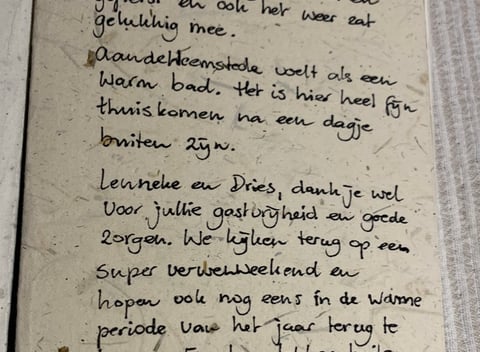 en ook het weer zat
gelukkig mee.
Aandeheemstede voelt als een
warm bad. Het is hier heel fijn
thuiskomen na een dagje
buiten zijn.
Lenneke en Dries, dankje wel
voor jullie gastvrijheid en goede
zorgen. We kijken terug op een
super verwenweekend en
hopen ook nog eens in de warme
periode van het jaar terug te